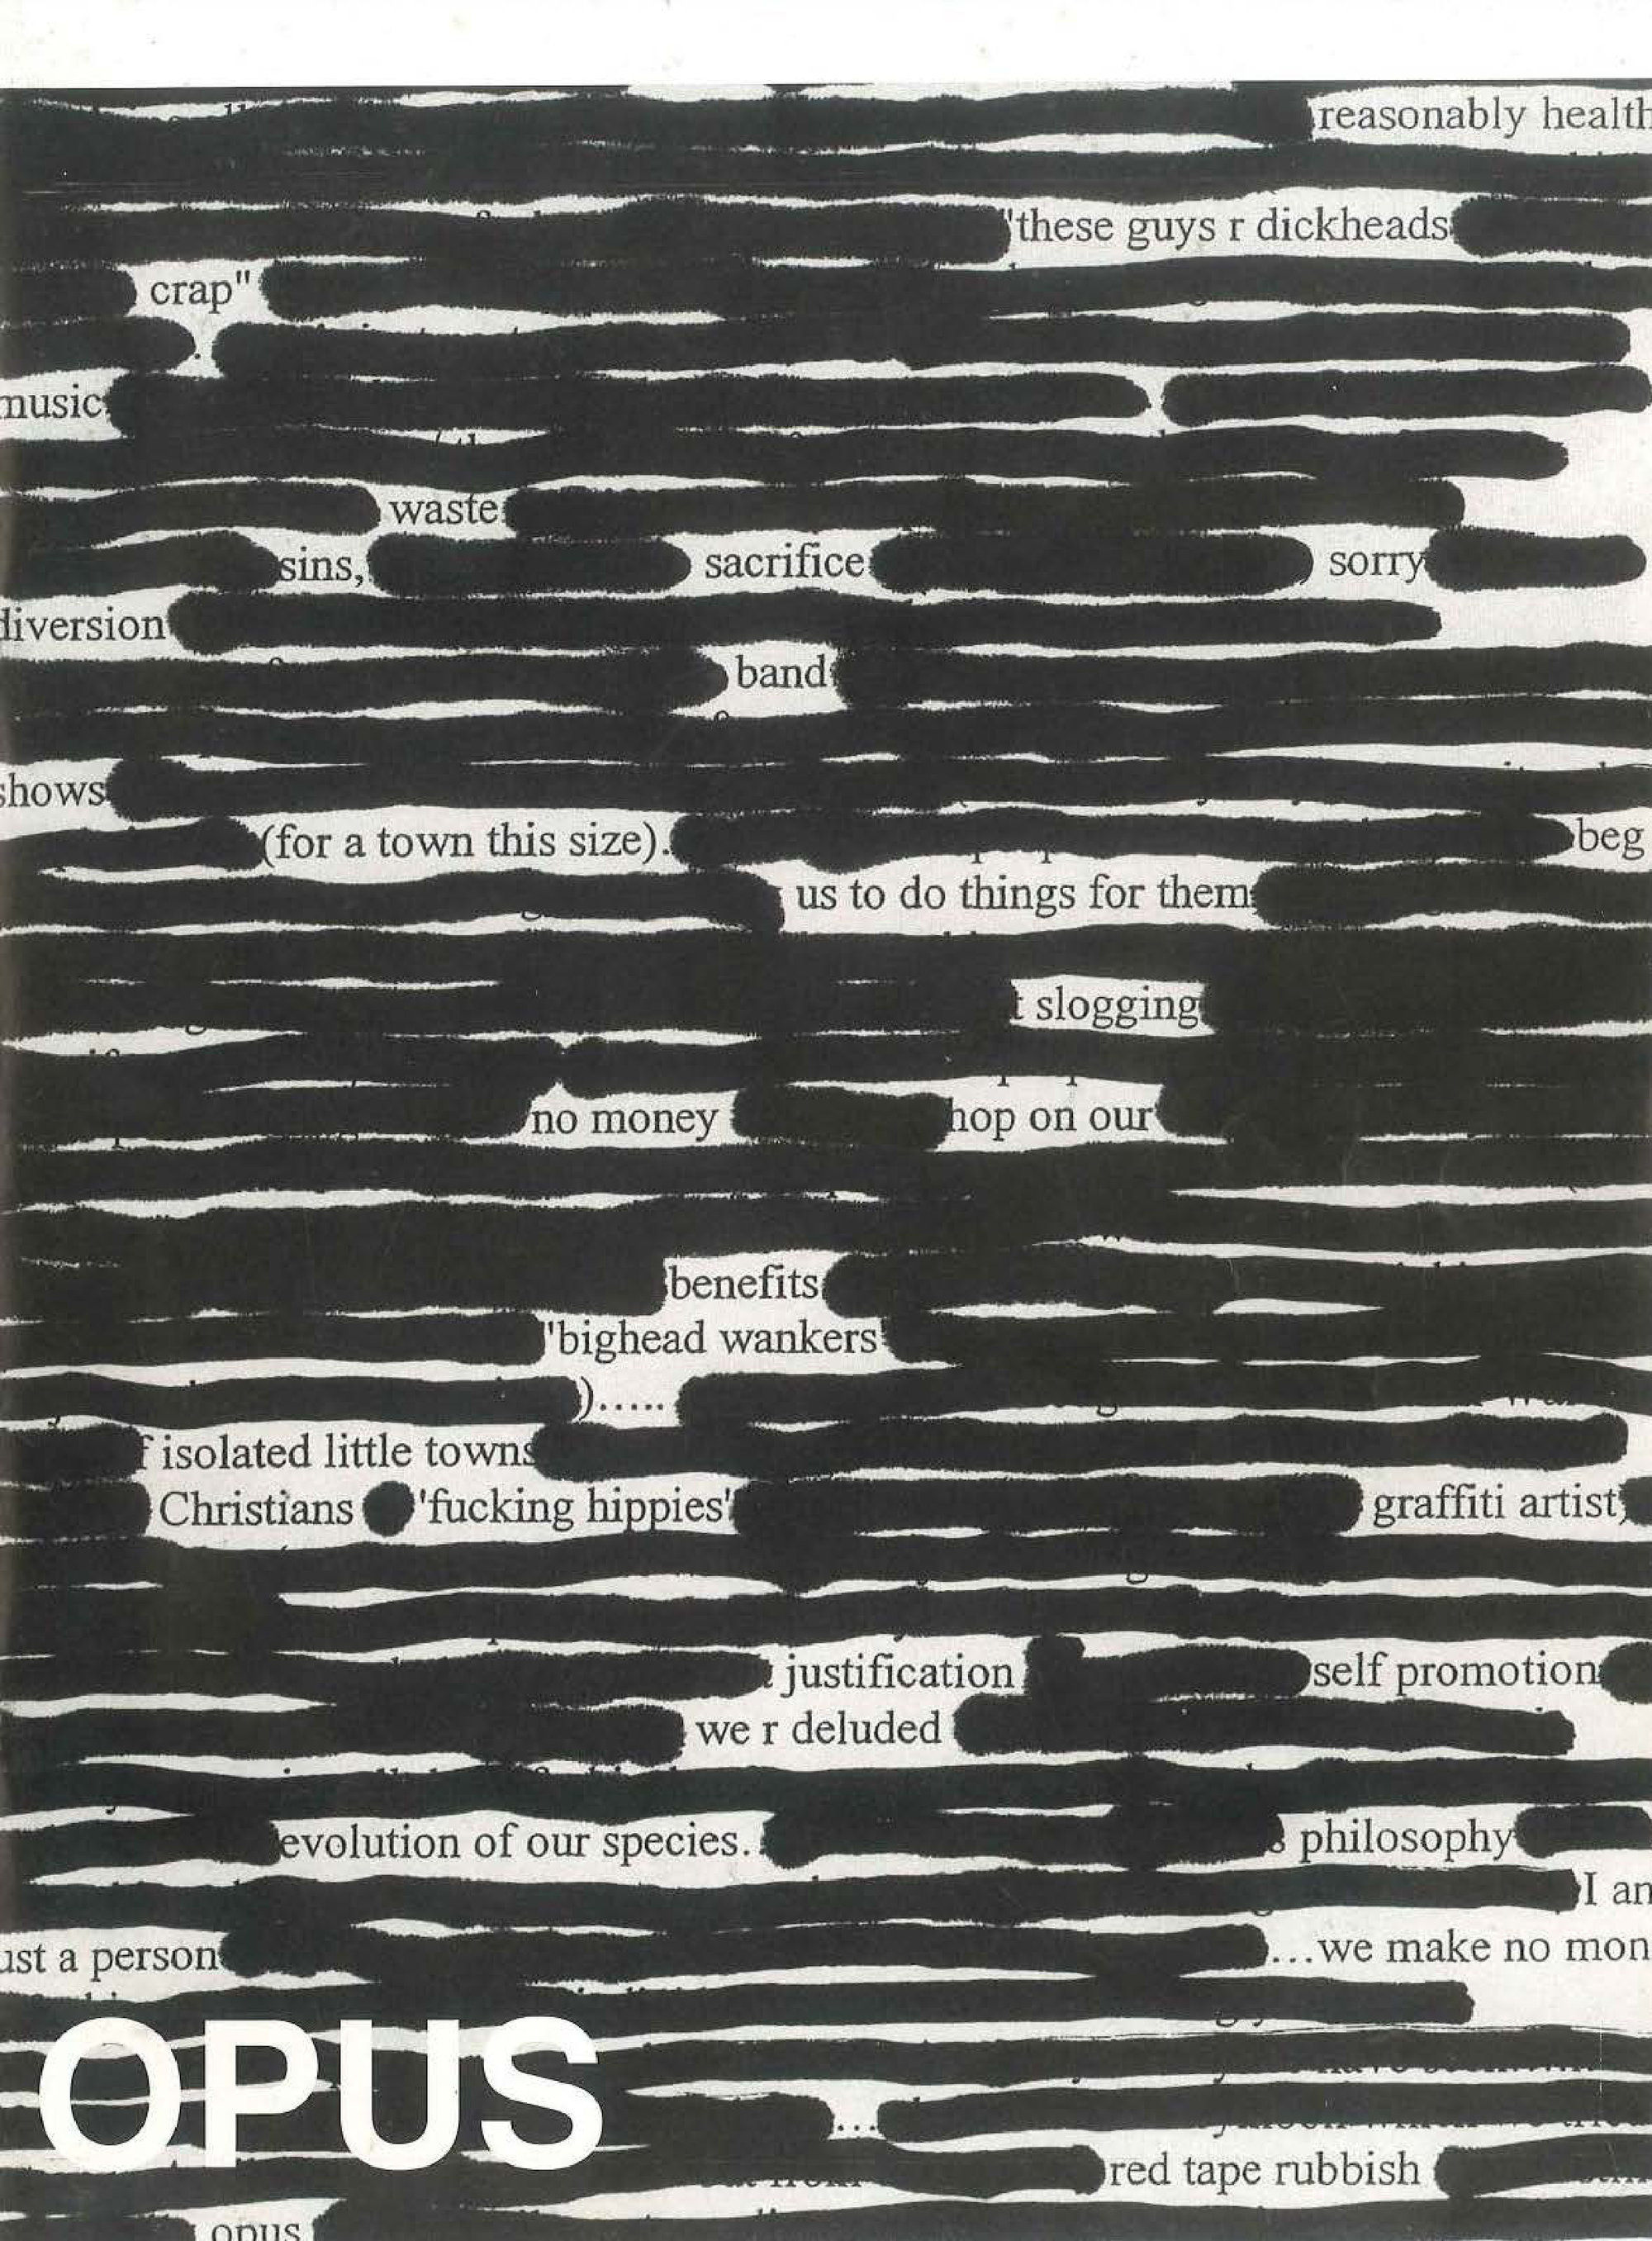 reasonably health
"these guys r dickheads
crap"
.
music
waste
sins, sacrifice sorry
diversion
band
shows
(for a town this size). beg
us to do things for them
t slogging
no money hop on our
benefits
'bighead wankers
).....
f isolated little towns
Christians 'fucking hippies' graffiti artist,
justification self promotion
we r deluded
evolution of our species. s philosophy
I am
ust a person ...we make no mon
OPUS
...
red tape rubbish
opus